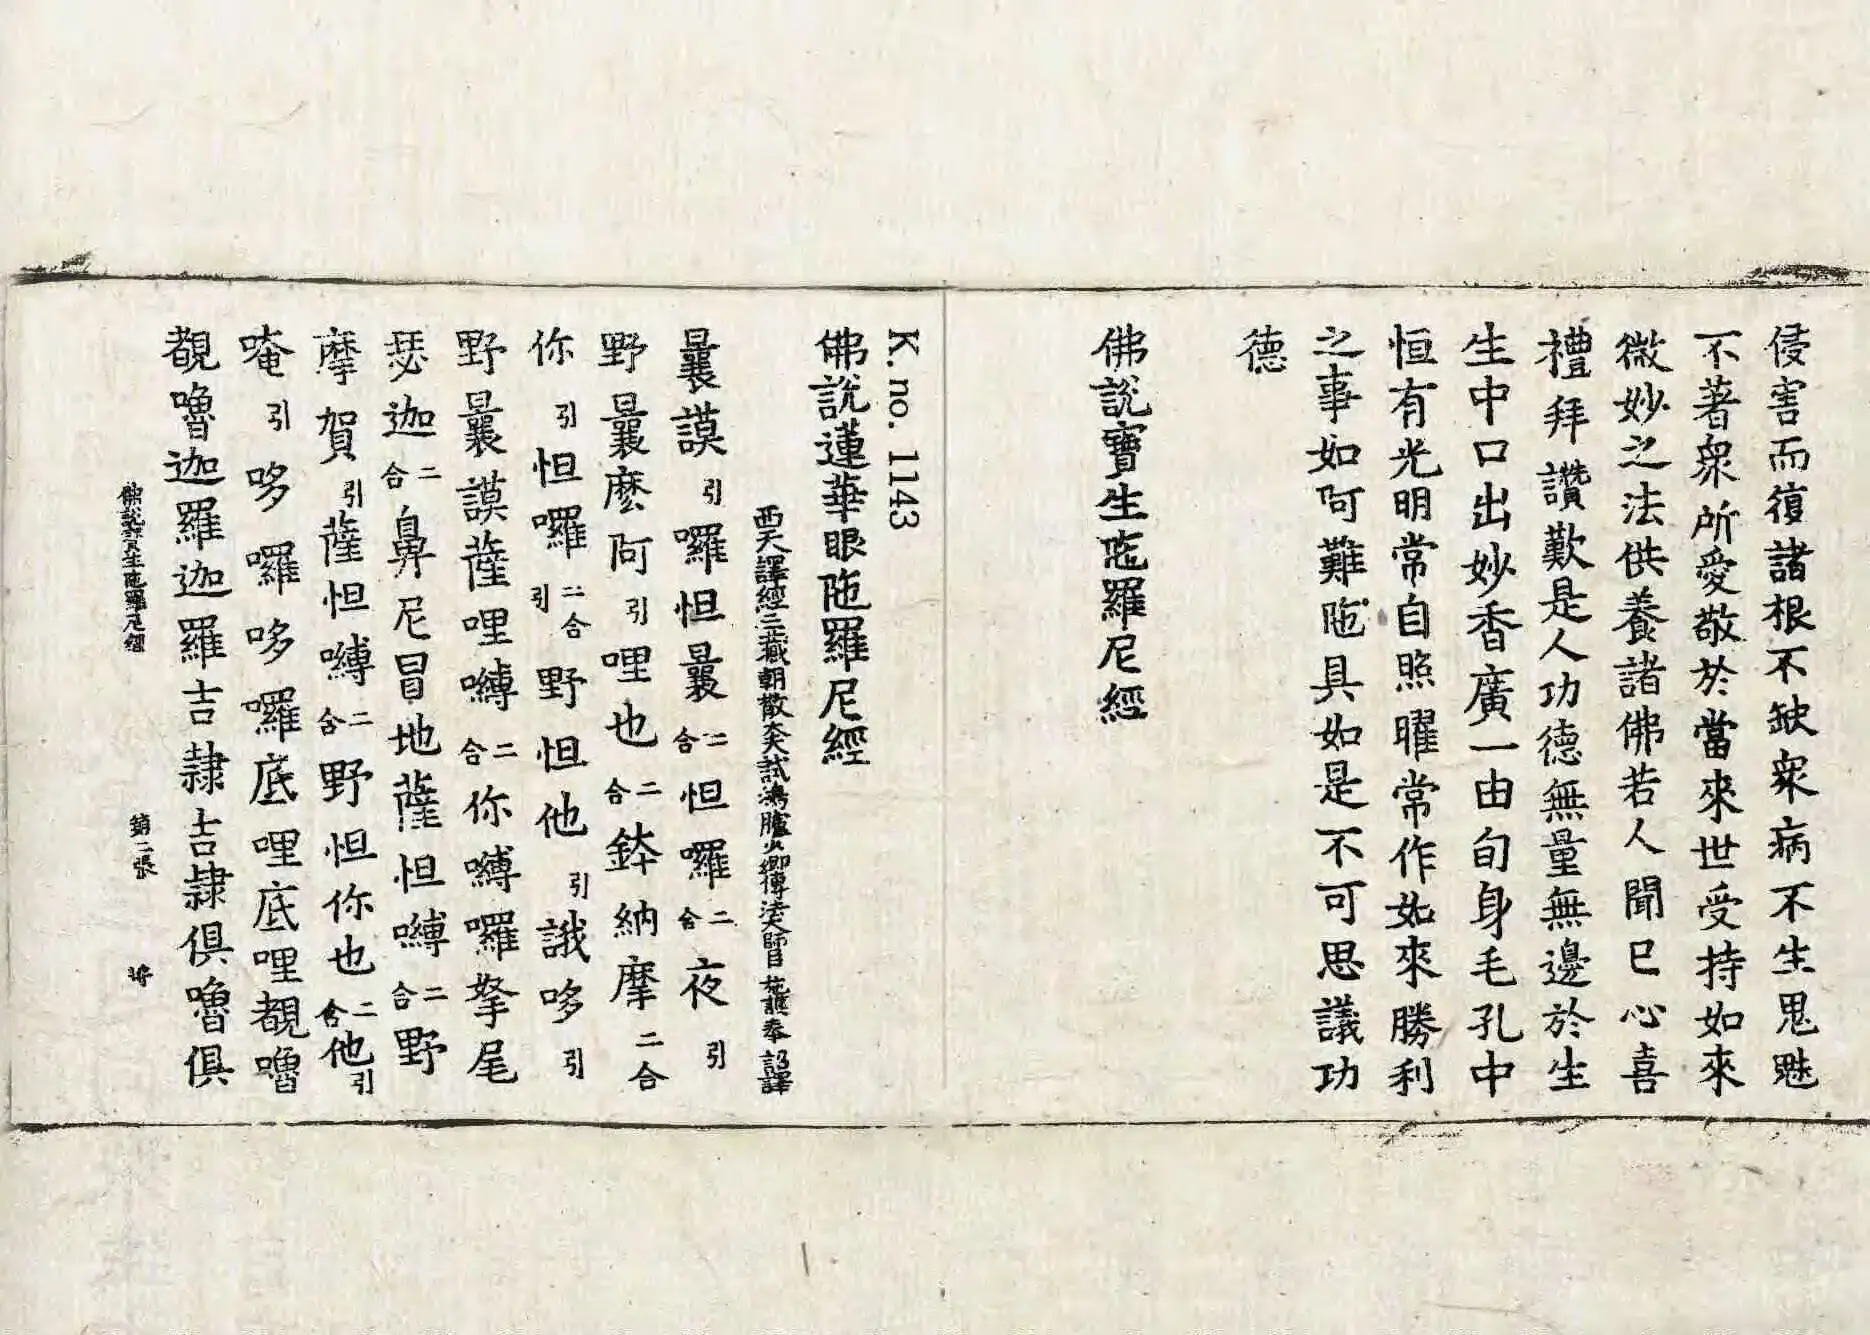 侵害而復諸根不缺衆病不生鬼魅
不著衆所愛敬於當來世受持如來
微妙之法供養諸佛若人聞已心喜
禮拜讚歎是人功德無量無邊於生
生中口出妙香廣一由旬身毛孔中
恒有光明常自照曜常作如來勝利
之事如阿難陁具如是不可思議功
德
佛說寶生陁羅尼經
K. no. 1143
佛說蓮華眼陁羅尼經
西天譯經三藏朝散大夫試鴻臚少卿傳法大師臣施護奉 詔譯
曩謨引囉怛曩二合怛囉二合夜引
野曩麽阿引哩也二合鉢納摩二合
你引怛囉二合引野怛他引誐哆引
野曩謨薩哩嚩二合你嚩囉拏尾
瑟迦二合鼻尼冒地薩怛嚩二合野
摩賀引薩怛嚩二合野怛你也二合他引
唵引哆囉哆囉底哩底哩覩嚕
覩嚕迦羅迦羅吉隷吉隷俱嚕俱
佛說寶生陁羅尼經 第二張 將